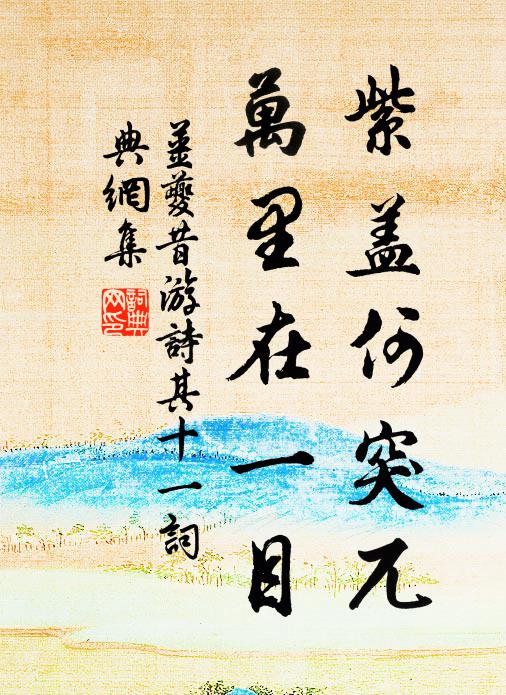 紫盖何突兀
萬里在一目
姜夔昔游詩其十一詞
典網集
詞典
网印